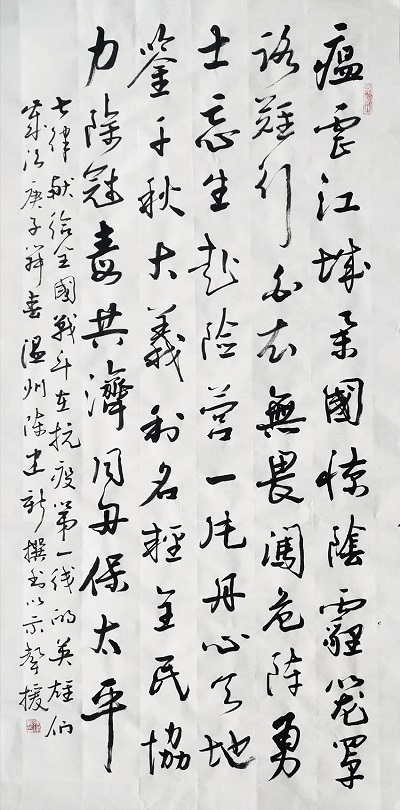 瘟雲江城举國惊陰霾籠罩
路難行白衣無畏闖危陣勇
士忘生赴險營一片丹心天地
鑒千秋大義利名輕全民協
力除冠毒共濟同舟保太平
七律献给全國戰斗在抗疫第一线的英雄们
歲次庚子春温州陈建新撰书以示聲援